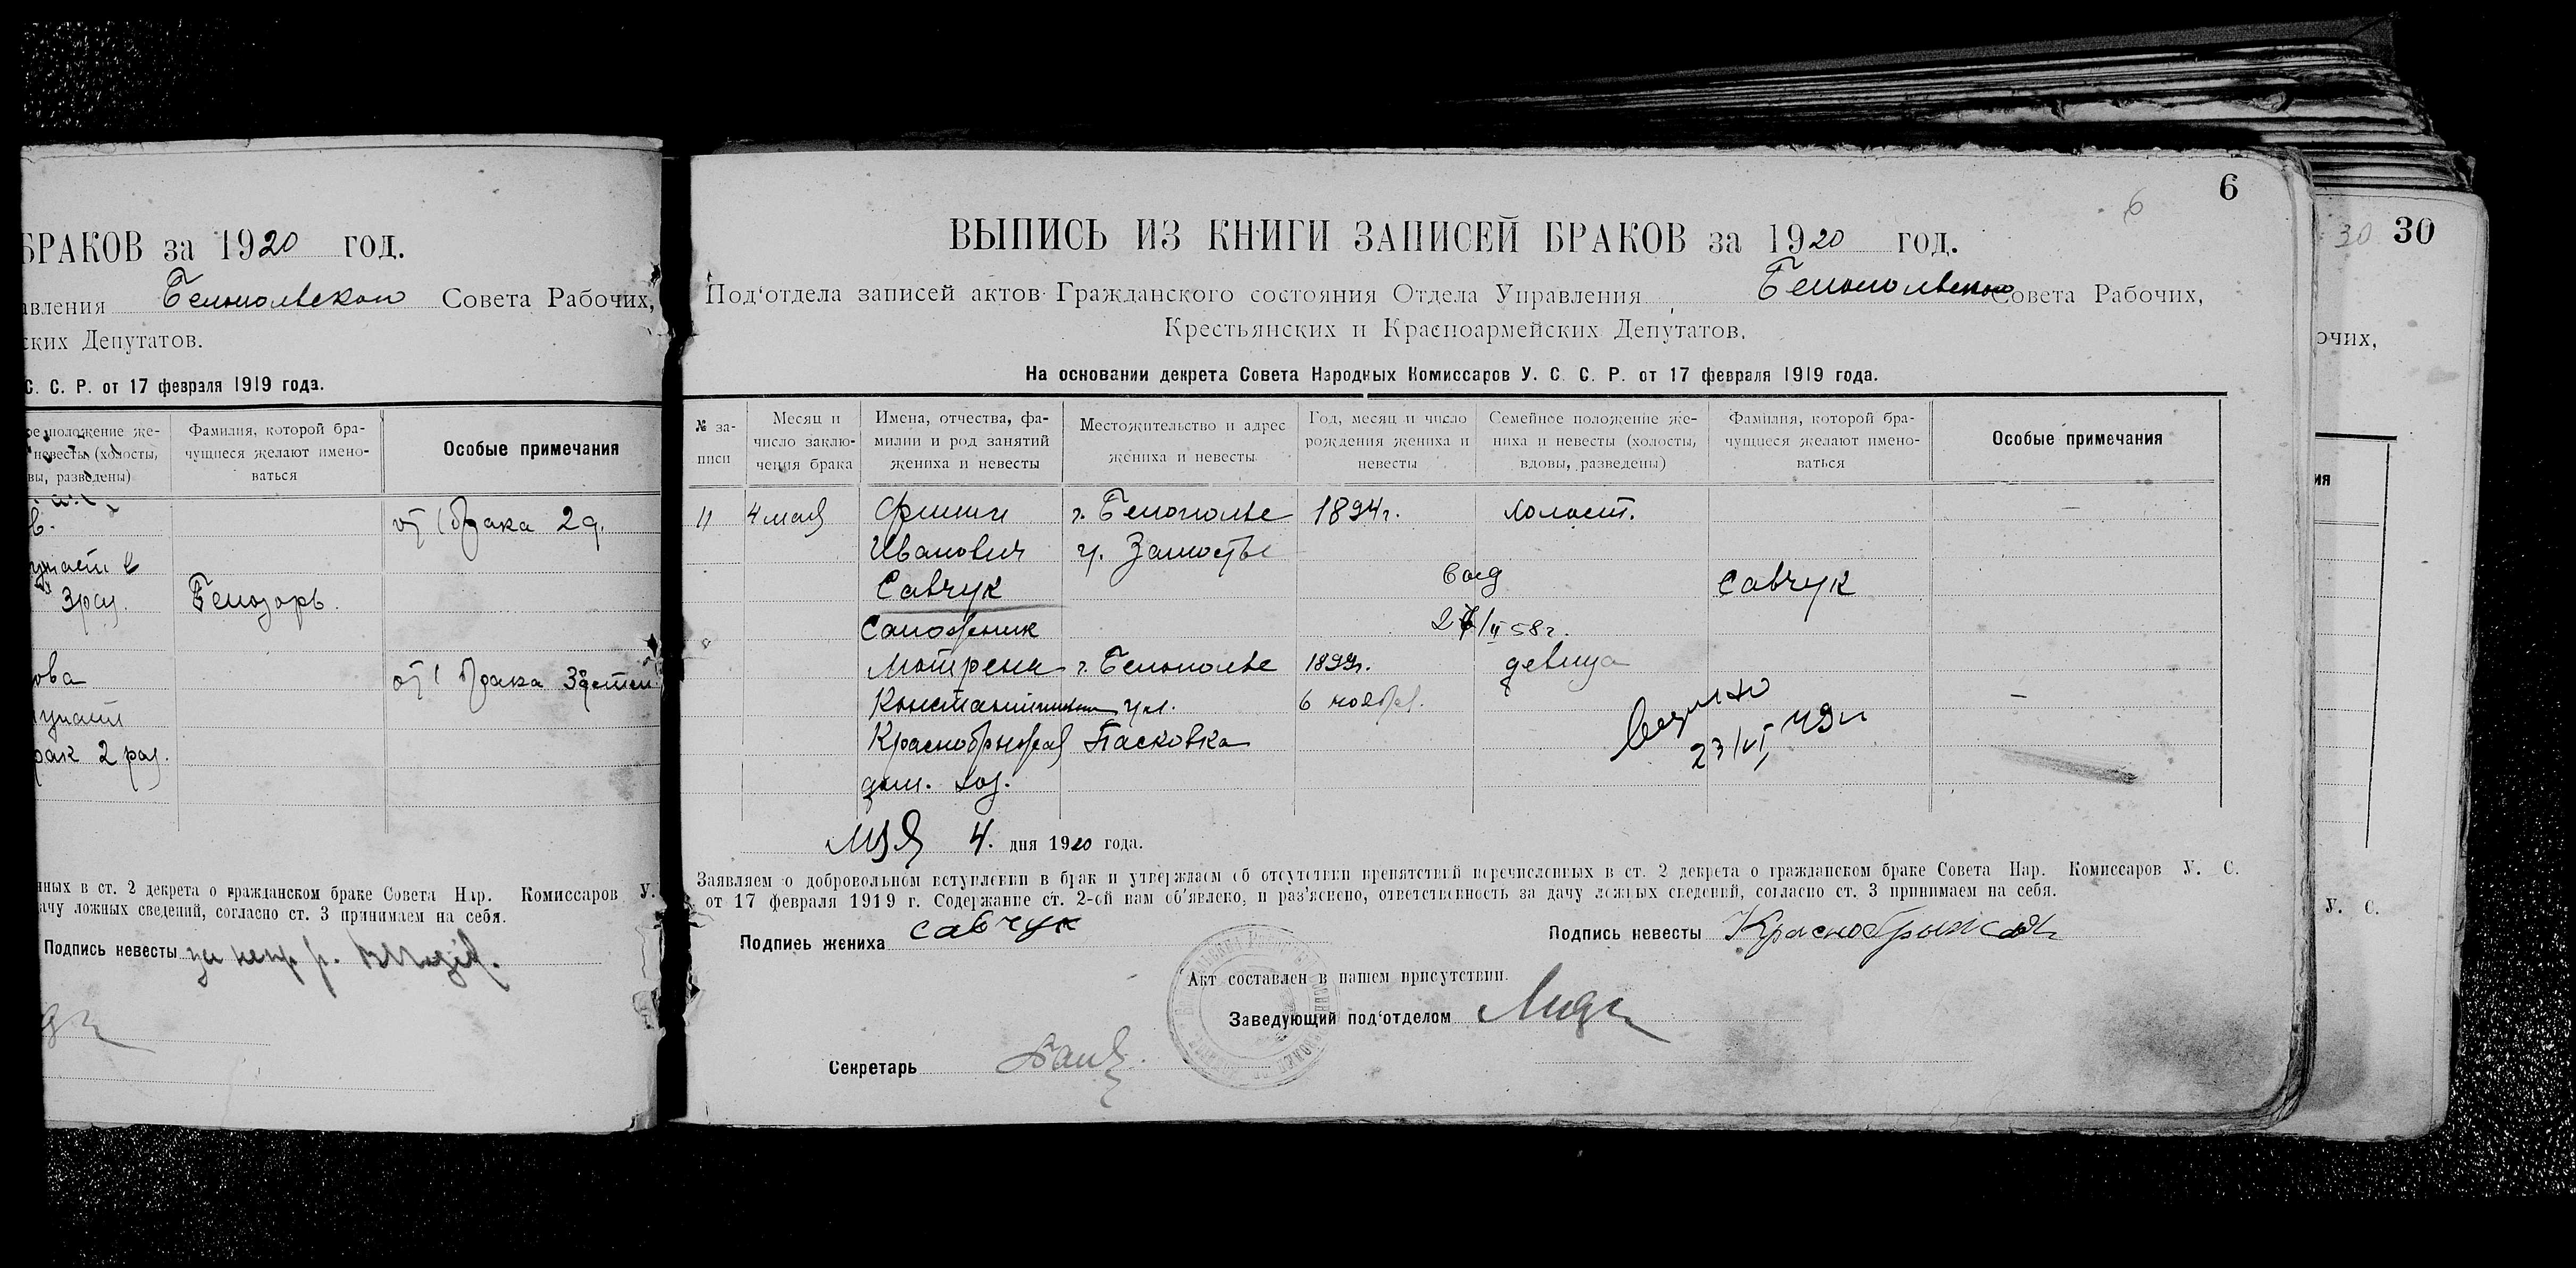 БРАКОВ за 1920 год.
авления Белопольского Совета Рабочих,
ских Депутатов.
С. С. Р. от 17 февраля 1919 года.
ое положение же-
невесты (холосты,
вы, разведены)
Фамилия, которой бра-
чущиеся желают имено-
ваться
Особые примечания
в.
от 1 брака 2 д.
3 раз.
Белозорь.
ова
от 1 брака 3 детей
рак 2 раз.
нных в ст. 2 декрета о гражданском браке Совета Нар. Комиссаров У.
дачу ложных сведений, согласно ст. 3 принимаем на себя.
Подпись невесты за негр.
6
6
ВЫПИСЬ ИЗ КНИГИ ЗАПИСЕЙ БРАКОВ за 1920 год.
Под'отдела записей актов Гражданского состояния Отдела Управления Белопольского Совета Рабочих,
Крестьянских и Красноармейских Депутатов.
На основании декрета Совета Народных Комиссаров У. С. С. Р. от 17 февраля 1919 года.
№ за-
писи
Месяц и
число заклю-
чения брака
Имена, отчества, фа-
милии и род занятий
жениха и невесты
Местожительство и адрес
жениха и невесты
Год, месяц и число
рождения жениха и
невесты
Семейное положение же-
ниха и невесты (холосты,
вдовы, разведены)
Фамилия, которой бра-
чущиеся желают имено-
ваться
Особые примечания
11 4 мая Филип г. Белополье 1894 г. холост. —
Иванович ул. Замостье
Савчук Савчук
Сапожник
II 58 г.
Мотрена г. Белополье 1899 г. девица
Константиновна ул. 6 ноября. —
Краснобрыжая Пасковка
дом. хоз.
23/VI 49 г
Мая 4. дня 1920 года.
Заявляем о добровольном вступлении в брак и утверждаем об отсутствии препятствий перечисленных в ст. 2 декрета о гражданском браке Совета Нар. Комиссаров У. С.
от 17 февраля 1919 г. Содержание ст. 2-ой нам об'явлено, и раз'яснено, ответственность за дачу ложных сведений, согласно ст. 3 принимаем на себя.
Подпись жениха Савчук
Подпись невесты Краснобрыжая
Акт составлен в нашем присутствии.
Заведующий под'отделом
Секретарь
30 30
очих,
ия
У. С.